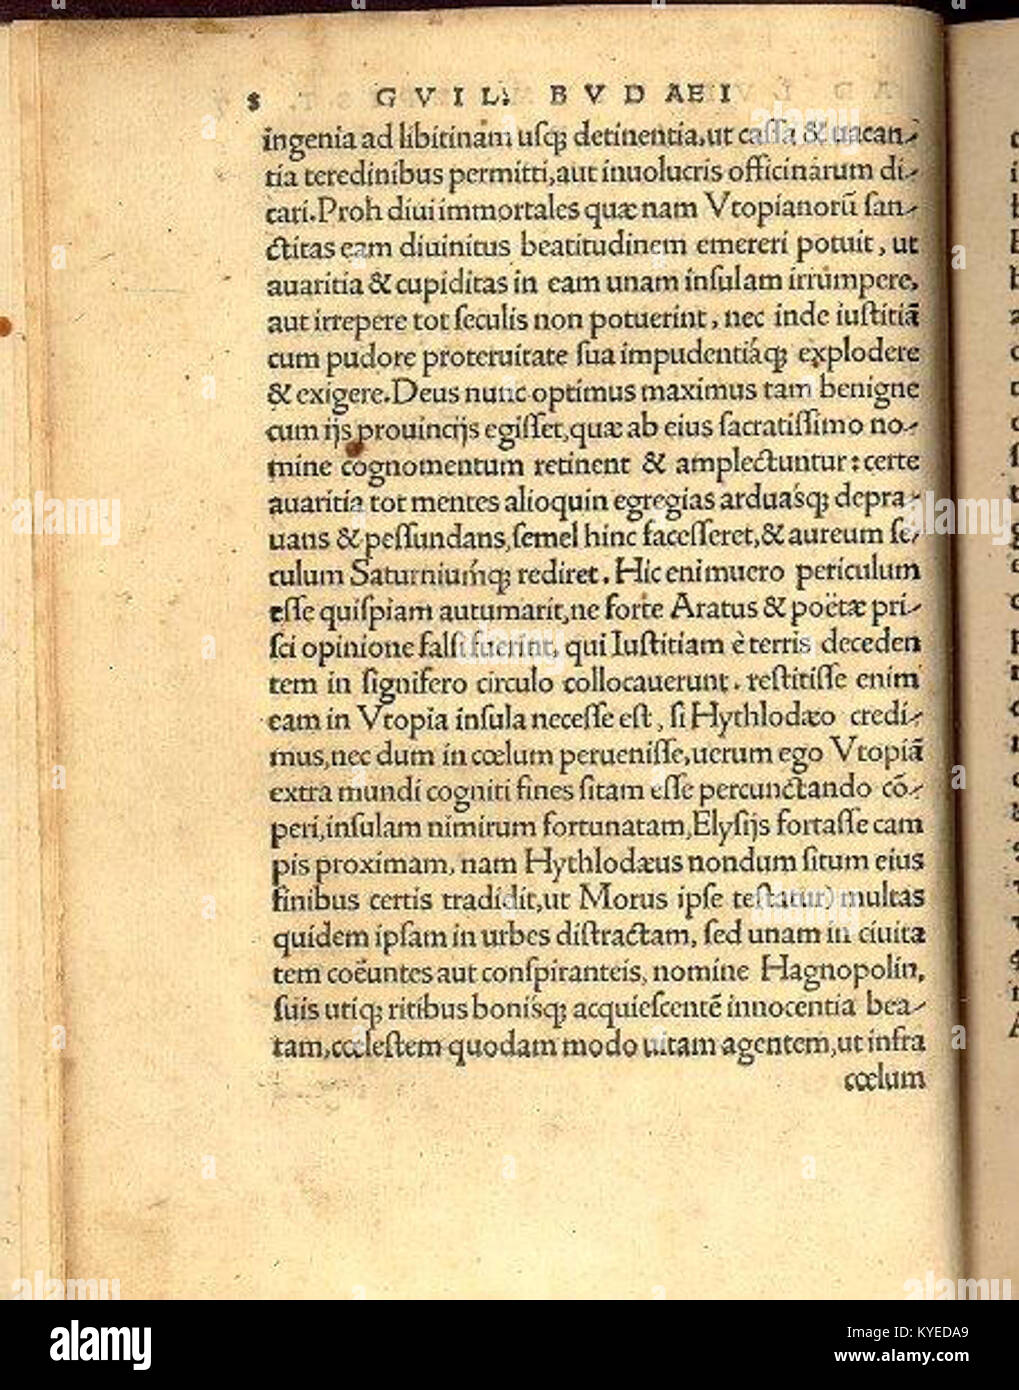 8 GVIL. BVDAEI
ingenia ad libitinam uſq; detinentia, ut caſſa & uacan-
tia teredinibus permitti, aut inuolucris officinarum di-
cari. Proh diui immortales quæ nam Vtopianorũ ſan-
ctitas eam diuinitus beatitudinem emereri potuit, ut
auaritia & cupiditas in eam unam inſulam irrumpere,
aut irrepere tot ſeculis non potuerint, nec inde iuſtitiã
cum pudore proteruitate ſua impudentiáq; explodere
& exigere. Deus nunc optimus maximus tam benigne
cum ijs prouincijs egiſſet, quæ ab eius ſacratiſſimo no-
mine cognomentum retinent & amplectuntur: certe
auaritia tot mentes alioquin egregias arduásq; depra-
uans & peſſundans, ſemel hinc faceſſeret, & aureum ſe-
culum Saturniumq; rediret. Hic enimuero periculum
eſſe quiſpiam autumarit, ne forte Aratus & poëtæ pri-
ſci opinione falſi fuerint, qui Iuſtitiam è terris deceden
tem in ſignifero circulo collocauerunt. reſtitiſſe enim
eam in Vtopia inſula neceſſe eſt, ſi Hythlodæo credi-
mus, nec dum in cœlum perueniſſe, uerum ego Vtopiã
extra mundi cogniti fines ſitam eſſe percunctando cõ-
peri, inſulam nimirum fortunatam, Elyſijs fortaſſe cam
pis proximam, nam Hythlodæus nondum ſitum eius
finibus certis tradidit, ut Morus ipſe teſtatur) multas
quidem ipſam in urbes diſtractam, ſed unam in ciuita
tem coëuntes aut conſpiranteis, nomine Hagnopolin,
ſuis utiq; ritibus bonisq; acquieſcentẽ innocentia bea-
tam, cœleſtem quodam modo uitam agentem, ut infra
cœlum
alamy
Image ID: KYEDA9
www.alamy.com